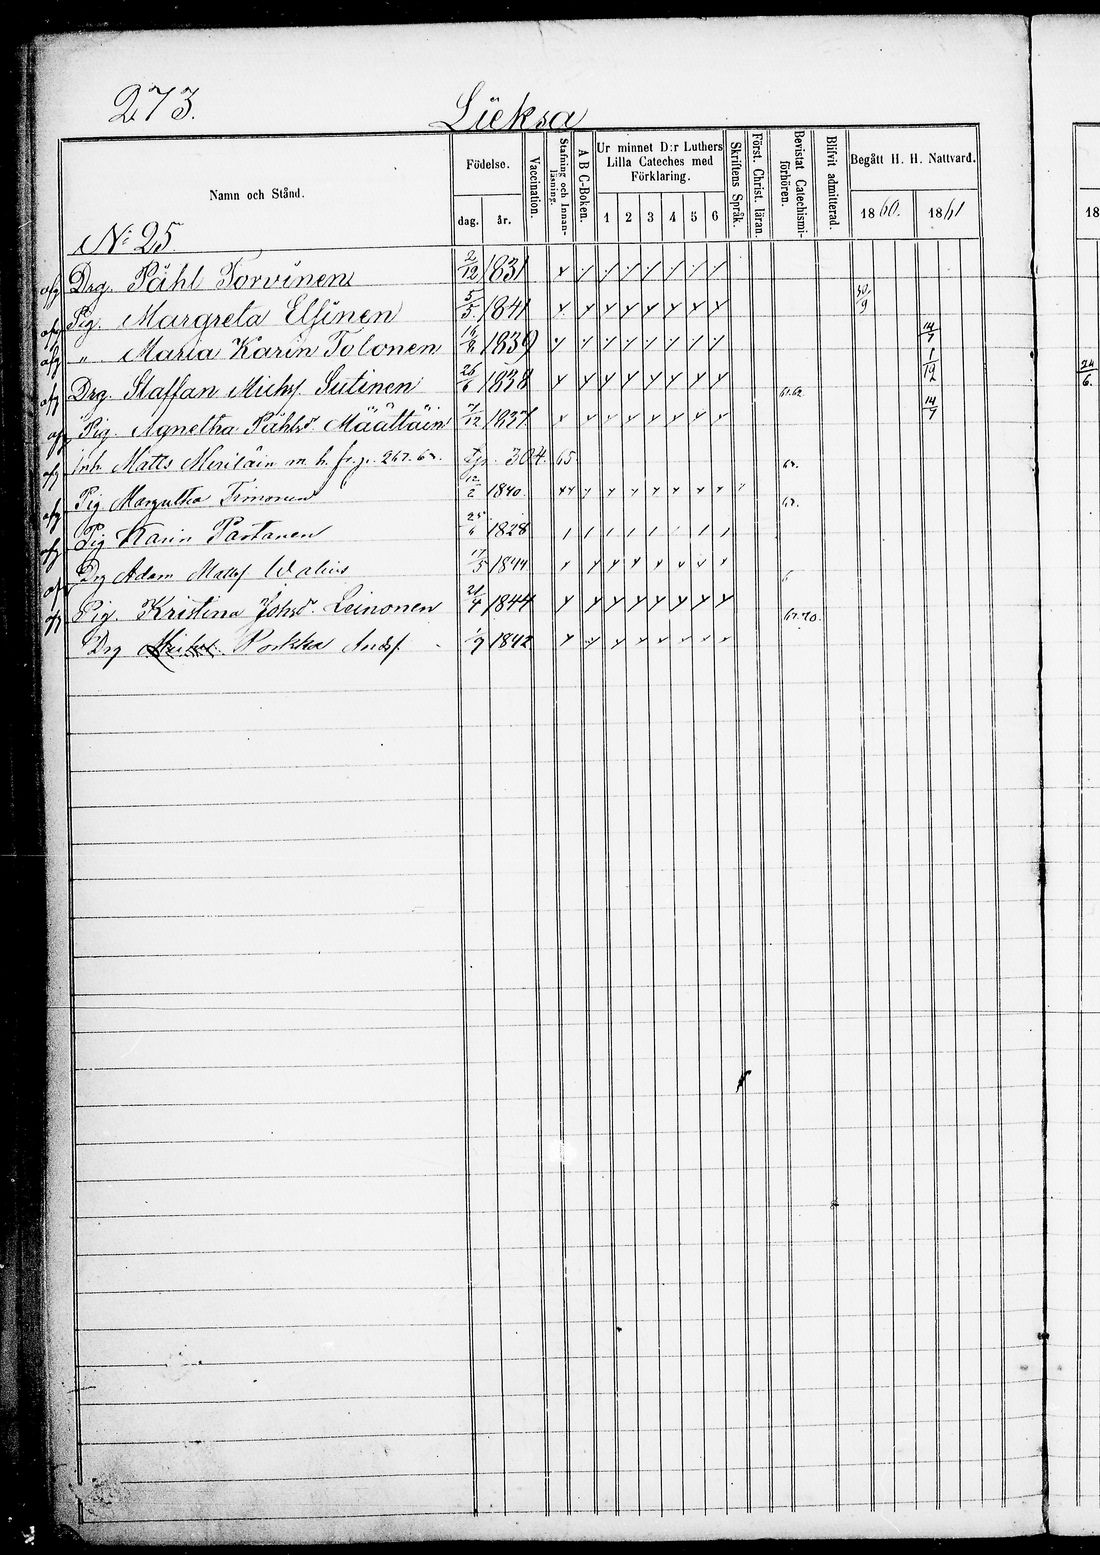 273.
Lieksa
Namn och Stånd. Födelse. dag. år. Vaccination. Stafning och Innanläsning. A B C-Boken. Ur minnet D:r Luthers Lilla Cateches med Förklaring. 1 2 3 4 5 6 Skriftens Språk. Först. Christ. läran. Bevistat Catechismiförhören. Blifvit admitterad. Begått H. H. Nattvard. 1860. 1861 18
N: 25
afg Drg. Påhl Torvinen 2/12 1831
afg Pig. Margreta Elfinen 5/5 1841 30/9
afg " Maria Karin Tolonen 16/8 1839 14/7
afg Drg. Staffan Michsf. Sutinen 26/6 1838 61.62 1/12 24/6.
afg Pig. Agnetha Påhlsd. Määttäin 1837 14/7
Inh. Matts Meriläin m. h. fr. p. 267. 304. 65.
afg Pig Margretha Timonen 12/2 1840
Pig Karin Partanen 25/6 1828
Drg Adam Mattsf 17/5 1844
Pig. Kristina Johsd. Leinonen 21/4 1844 70.
Drg Porkka Andsf. 1/9 1842